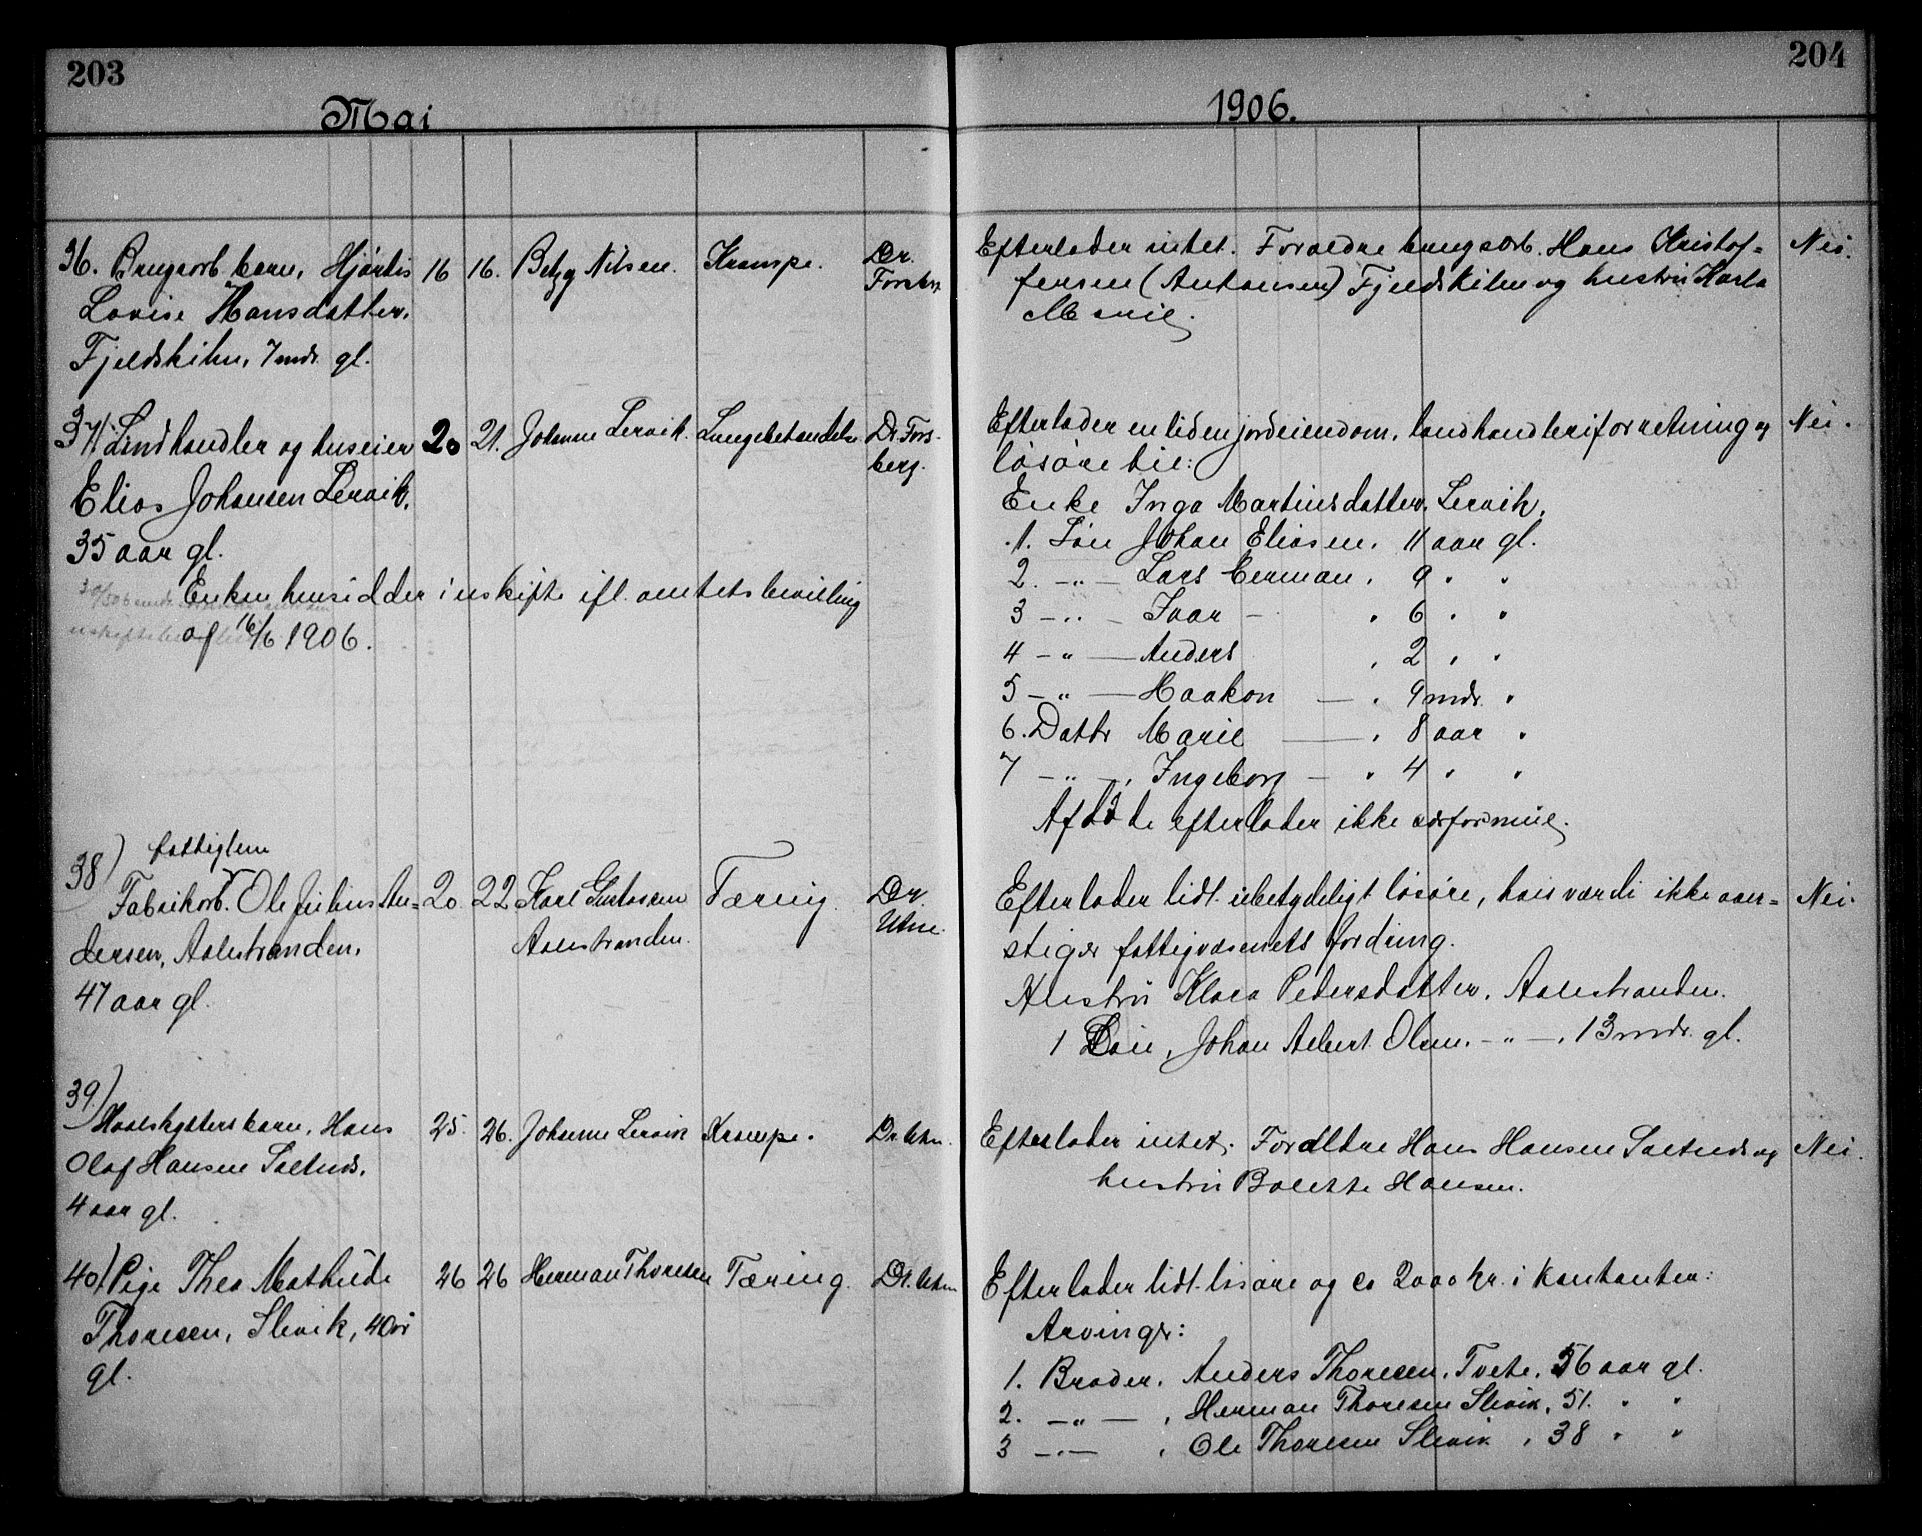 203
204
Mai
1906.
36. Brugsarb. barn, Hjørdis 16 16. Betzy Nilsen. Krampe. Dr.
Lovise Hansdatter,
Fjeldskilen, 7 mdr. gl.
Efterlader intet. Forældre brugsarb. Hans Kristof= Nei.
fersen (Antonsen) Fjeldskilen og hustru Karla
37) Landhandler og huseier 20 21. Johanne Lervik. Lungebetændelse Dr. Fors-
berg.
Elias Johansen Lervik,
35 aar gl.
Enken hensidder i uskifte ifl. amtets bevilling
af 16/6 1906.
Efterlader en liden jordeiendom, landhandleriforretning og Nei.
løsøre til:
Enke Inga Martinsdatter, Lervik,
1. Søn Johan Eliasen, 11 aar gl.
2. -"- Lars Herman, 9 " "
3 -"- Ivar - " 6 " "
4 -"- Anders , 2 " "
5 -"- Haakon - " 9 mdr. "
6. Dattr Marie - , 8 aar "
7 -"-, Ingeborg - " 4 " "
Afdøde efterlader ikke særformue.
38) fattiglem
Fabrikarb. Ole Julius An= 20 22 Karl Gustavsen Tæring. Dr.
Utne.
dersen, Aalestranden, Aalestranden.
47 aar gl.
Efterlader lidt ubetydeligt løsøre, hvis værdi ikke over= Nei.
stiger fattigvæsenets fordring.
Hustru Klara Pedersdatter, Aalestranden.
1 Søn, Johan Albert Olsen, -"-, 13 mdr. gl.
39)
barn, Hans 25. 26. Johanne Lervik Krampe. Dr. Utne.
Olaf Hansen Saltnes,
4 aar gl.
Efterlader intet. Forældre Hans Hansen Saltnes og Nei.
hustru Bolette Hansen.
40) Pige Thea Mathilde 26 26 Herman Thoresen Tæring. Dr. Utne
Thoresen, Slevik, 40 år
gl.
Efterlader lidt løsøre og ca 2000 kr. i kontanter:
Arvinger:
1. Broder, Anders Thoresen, Tvete, 56 aar gl.
2. -"- , Herman Thoresen Slevik, 51. " "
3 -"- , Ole Thoresen Slevik , 38 " "